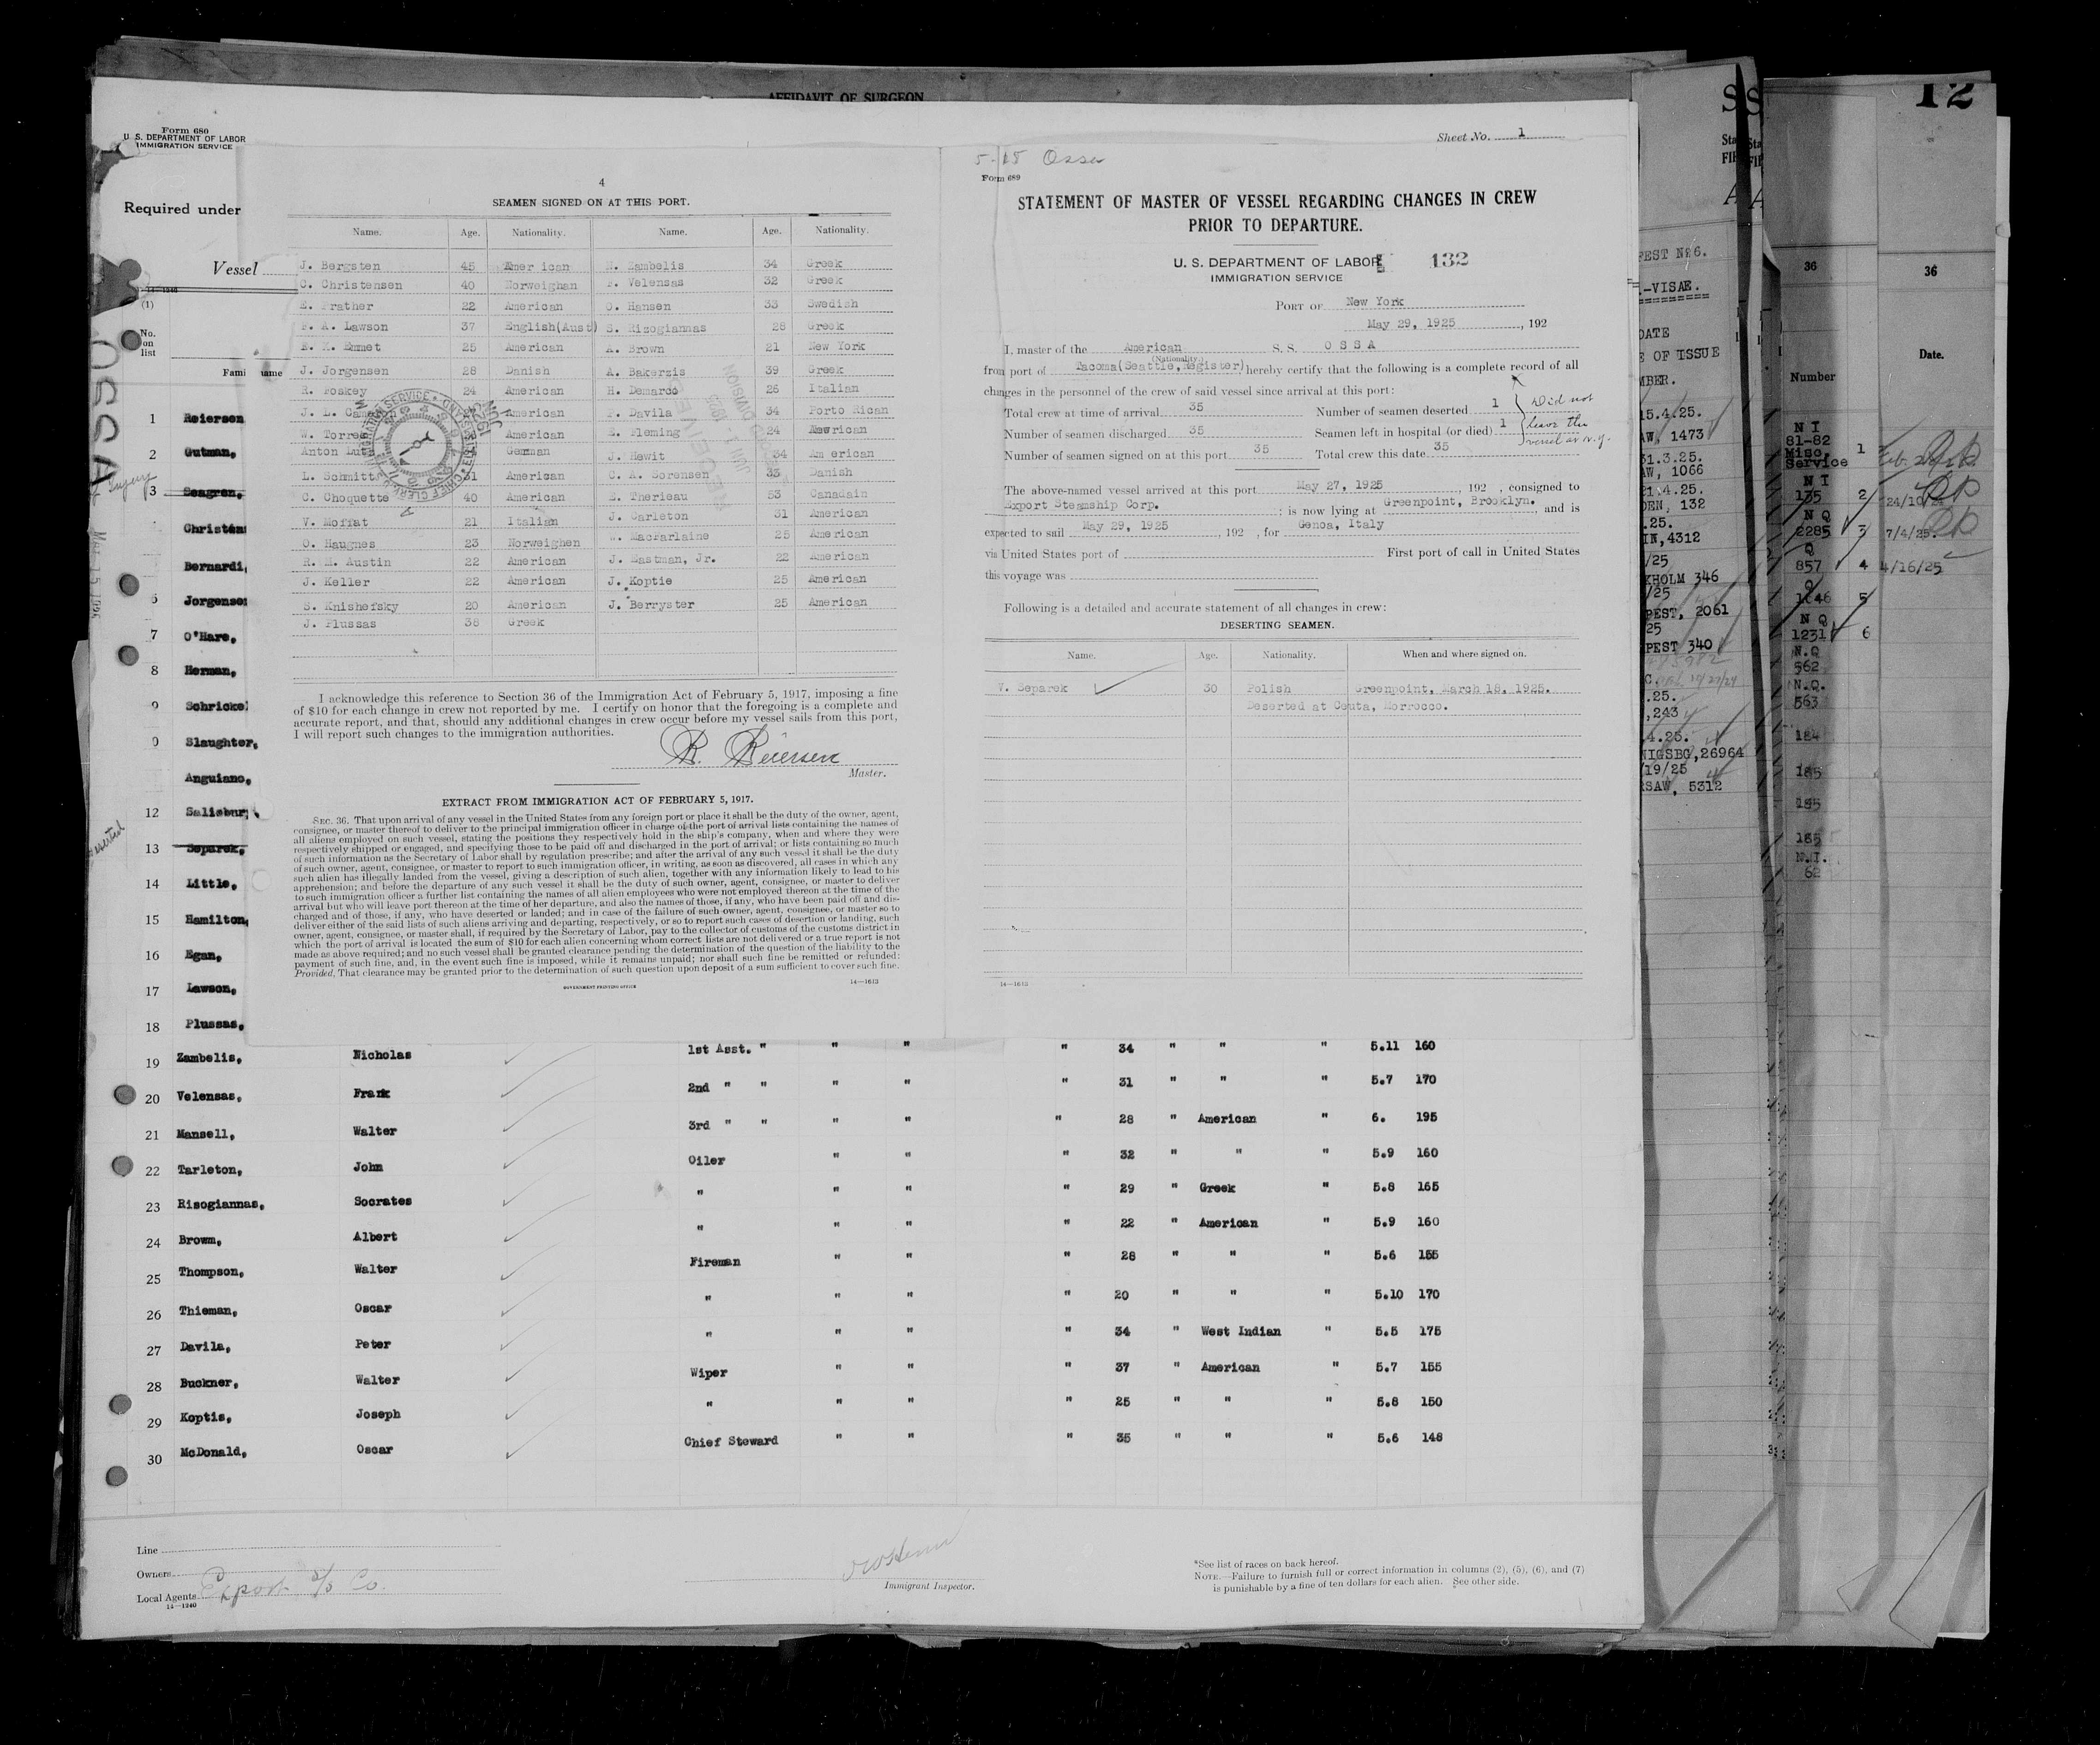 AFFIDAVIT OF SURGEON
Form 680
U. S. DEPARTMENT OF LABOR
IMMIGRATION SERVICE
Required under
Vessel
14—1240
(1)
No.
on
list
Fami ame
1 Reiersen
2 Gutman,
3 Seagren,
Christen
Bernardi,
Jorgensen
7 O'Hare,
8 Herman,
9 Schrickel
Slaughter,
Anguiano,
12 Salisbury,
13 Separek,
14 Little,
15 Hamilton,
16 Egan,
17 Lawson,
18 Plussas,
OSSA
Injury
Deserted
4
SEAMEN SIGNED ON AT THIS PORT.
Name. Age. Nationality. Name. Age. Nationality.
J. Bergsten 45 American N. Zambelis 34 Greek
C. Christensen 40 Norweighan F. Velensas 32 Greek
E. Prather 22 American O. Hansen 33 Swedish
F. A. Lawson 37 English(Aust) S. Risogiannas 28 Greek
E. K. Emmet 25 American A. Brown 21 New York
J. Jorgensen 28 Danish A. Bakerzis 39 Greek
R. Foskey 24 American H. Demarco 26 Italian
J. L. American F. Davila 34 Porto Rican
W. Torres American E. Fleming 24 American
Anton German J. Hewit 34 American
L. Schmitt 31 American C. A. Sorensen 33 Danish
C. Choquette 40 American E. Therieau 53 Canadain
V. Moffat 21 Italian J. Carleton 31 American
O. Haugnes 23 Norweighen W. MacFarlaine 25 American
R. M. Austin 22 American J. Eastman, Jr. 22 American
J. Keller 22 American J. Koptie 25 American
S. Knishefsky 20 American J. Berryster 25 American
J. Plussas 38 Greek
I acknowledge this reference to Section 36 of the Immigration Act of February 5, 1917, imposing a fine
of $10 for each change in crew not reported by me. I certify on honor that the foregoing is a complete and
accurate report, and that, should any additional changes in crew occur before my vessel sails from this port,
I will report such changes to the immigration authorities.
R. Reiersen
Master.
EXTRACT FROM IMMIGRATION ACT OF FEBRUARY 5, 1917.
SEC. 36. That upon arrival of any vessel in the United States from any foreign port or place it shall be the duty of the owner, agent,
consignee, or master thereof to deliver to the principal immigration officer in charge of the port of arrival lists containing the names of
all aliens employed on such vessel, stating the positions they respectively hold in the ship's company, when and where they were
respectively shipped or engaged, and specifying those to be paid off and discharged in the port of arrival; or lists containing so much
of such information as the Secretary of Labor shall by regulation prescribe; and after the arrival of any such vessel it shall be the duty
of such owner, agent, consignee, or master to report to such immigration officer, in writing, as soon as discovered, all cases in which any
such alien has illegally landed from the vessel, giving a description of such alien, together with any information likely to lead to his
apprehension; and before the departure of any such vessel it shall be the duty of such owner, agent, consignee, or master to deliver
to such immigration officer a further list containing the names of all alien employees who were not employed thereon at the time of the
arrival but who will leave port thereon at the time of her departure, and also the names of those, if any, who have been paid off and dis-
charged and of those, if any, who have deserted or landed; and in case of the failure of such owner, agent, consignee, or master so to
deliver either of the said lists of such aliens arriving and departing, respectively, or so to report such cases of desertion or landing, such
owner, agent, consignee, or master shall, if required by the Secretary of Labor, pay to the collector of customs of the customs district in
which the port of arrival is located the sum of $10 for each alien concerning whom correct lists are not delivered or a true report is not
made as above required; and no such vessel shall be granted clearance pending the determination of the question of the liability to the
payment of such fine, and, in the event such fine is imposed, while it remains unpaid; nor shall such fine be remitted or refunded:
Provided, That clearance may be granted prior to the determination of such question upon deposit of a sum sufficient to cover such fine.
GOVERNMENT PRINTING OFFICE 14—1613
Sheet No. 1
Form 689
STATEMENT OF MASTER OF VESSEL REGARDING CHANGES IN CREW
PRIOR TO DEPARTURE.
U. S. DEPARTMENT OF LABOR 132
IMMIGRATION SERVICE
PORT OF New York
May 29, 1925, 192
I, master of the American S. S. O S S A
(Nationality.)
from port of Tacoma(Seattle, Register) hereby certify that the following is a complete record of all
changes in the personnel of the crew of said vessel since arrival at this port:
Total crew at time of arrival 35 Number of seamen deserted 1
Number of seamen discharged 35 Seamen left in hospital (or died) 1
Number of seamen signed on at this port 35 Total crew this date 35
Did not
leave the
vessel at N.Y.
The above-named vessel arrived at this port May 27, 1925, 192 , consigned to
Export Steamship Corp. ; is now lying at Greenpoint, Brooklyn. , and is
expected to sail May 29, 1925, 192 , for Genoa, Italy
via United States port of First port of call in United States
this voyage was
Following is a detailed and accurate statement of all changes in crew:
DESERTING SEAMEN.
Name. Age. Nationality. When and where signed on.
V. Separek 30 Polish Greenpoint, March 18, 1925.
Deserted at Ceuta, Morrocco.
14—1613
19 Zambelis, Nicholas 1st Asst. " " " " 34 " " " 5.11 160
20 Velensas, Frank 2nd " " " " " 31 " " " 5.7 170
21 Mansell, Walter 3rd " " " " " 28 " American " 6. 195
22 Tarleton, John Oiler " " " 32 " " " 5.9 160
23 Risogiannas, Socrates " " " " 29 " Greek " 5.8 165
24 Brown, Albert " " " " 22 " American " 5.9 160
25 Thompson, Walter Fireman " " " 28 " " " 5.6 155
26 Thieman, Oscar " " " " 20 " " " 5.10 170
27 Davila, Peter " " " " 34 " West Indian " 5.5 175
28 Buckner, Walter Wiper " " " 37 " American " 5.7 155
29 Koptis, Joseph " " " " 25 " " " 5.8 150
30 McDonald, Oscar Chief Steward " " " 35 " " " 5.6 148
Line
Owners
Local Agents Export S/S Co.
14—1240
Immigrant Inspector.
*See list of races on back hereof.
NOTE.—Failure to furnish full or correct information in columns (2), (5), (6), and (7)
is punishable by a fine of ten dollars for each alien. See other side.
FEST No6.
.-VISAE.
DATE
E OF ISSUE
MBER.
15.4.25.
AW, 1473
31.3.25.
AW, 1066
21.4.25.
DEN, 132
.25.
IN,4312
/25
KHOLM 346
/25
PEST, 2061
25
PEST 340
.25.
,243
.4.25.
NIGSBG,26964
/19/25
RSAW, 5312
12
36 36
Number Date.
N I
81-82
Misc.
Service 1
N I
135 2 24/10/24
N Q
2285 3 7/4/25.
Q
857 4 4/16/25
Q
1646 5
N Q
1231 6
N.Q
562
N.Q.
563
184
185
185
185
N.I.
62